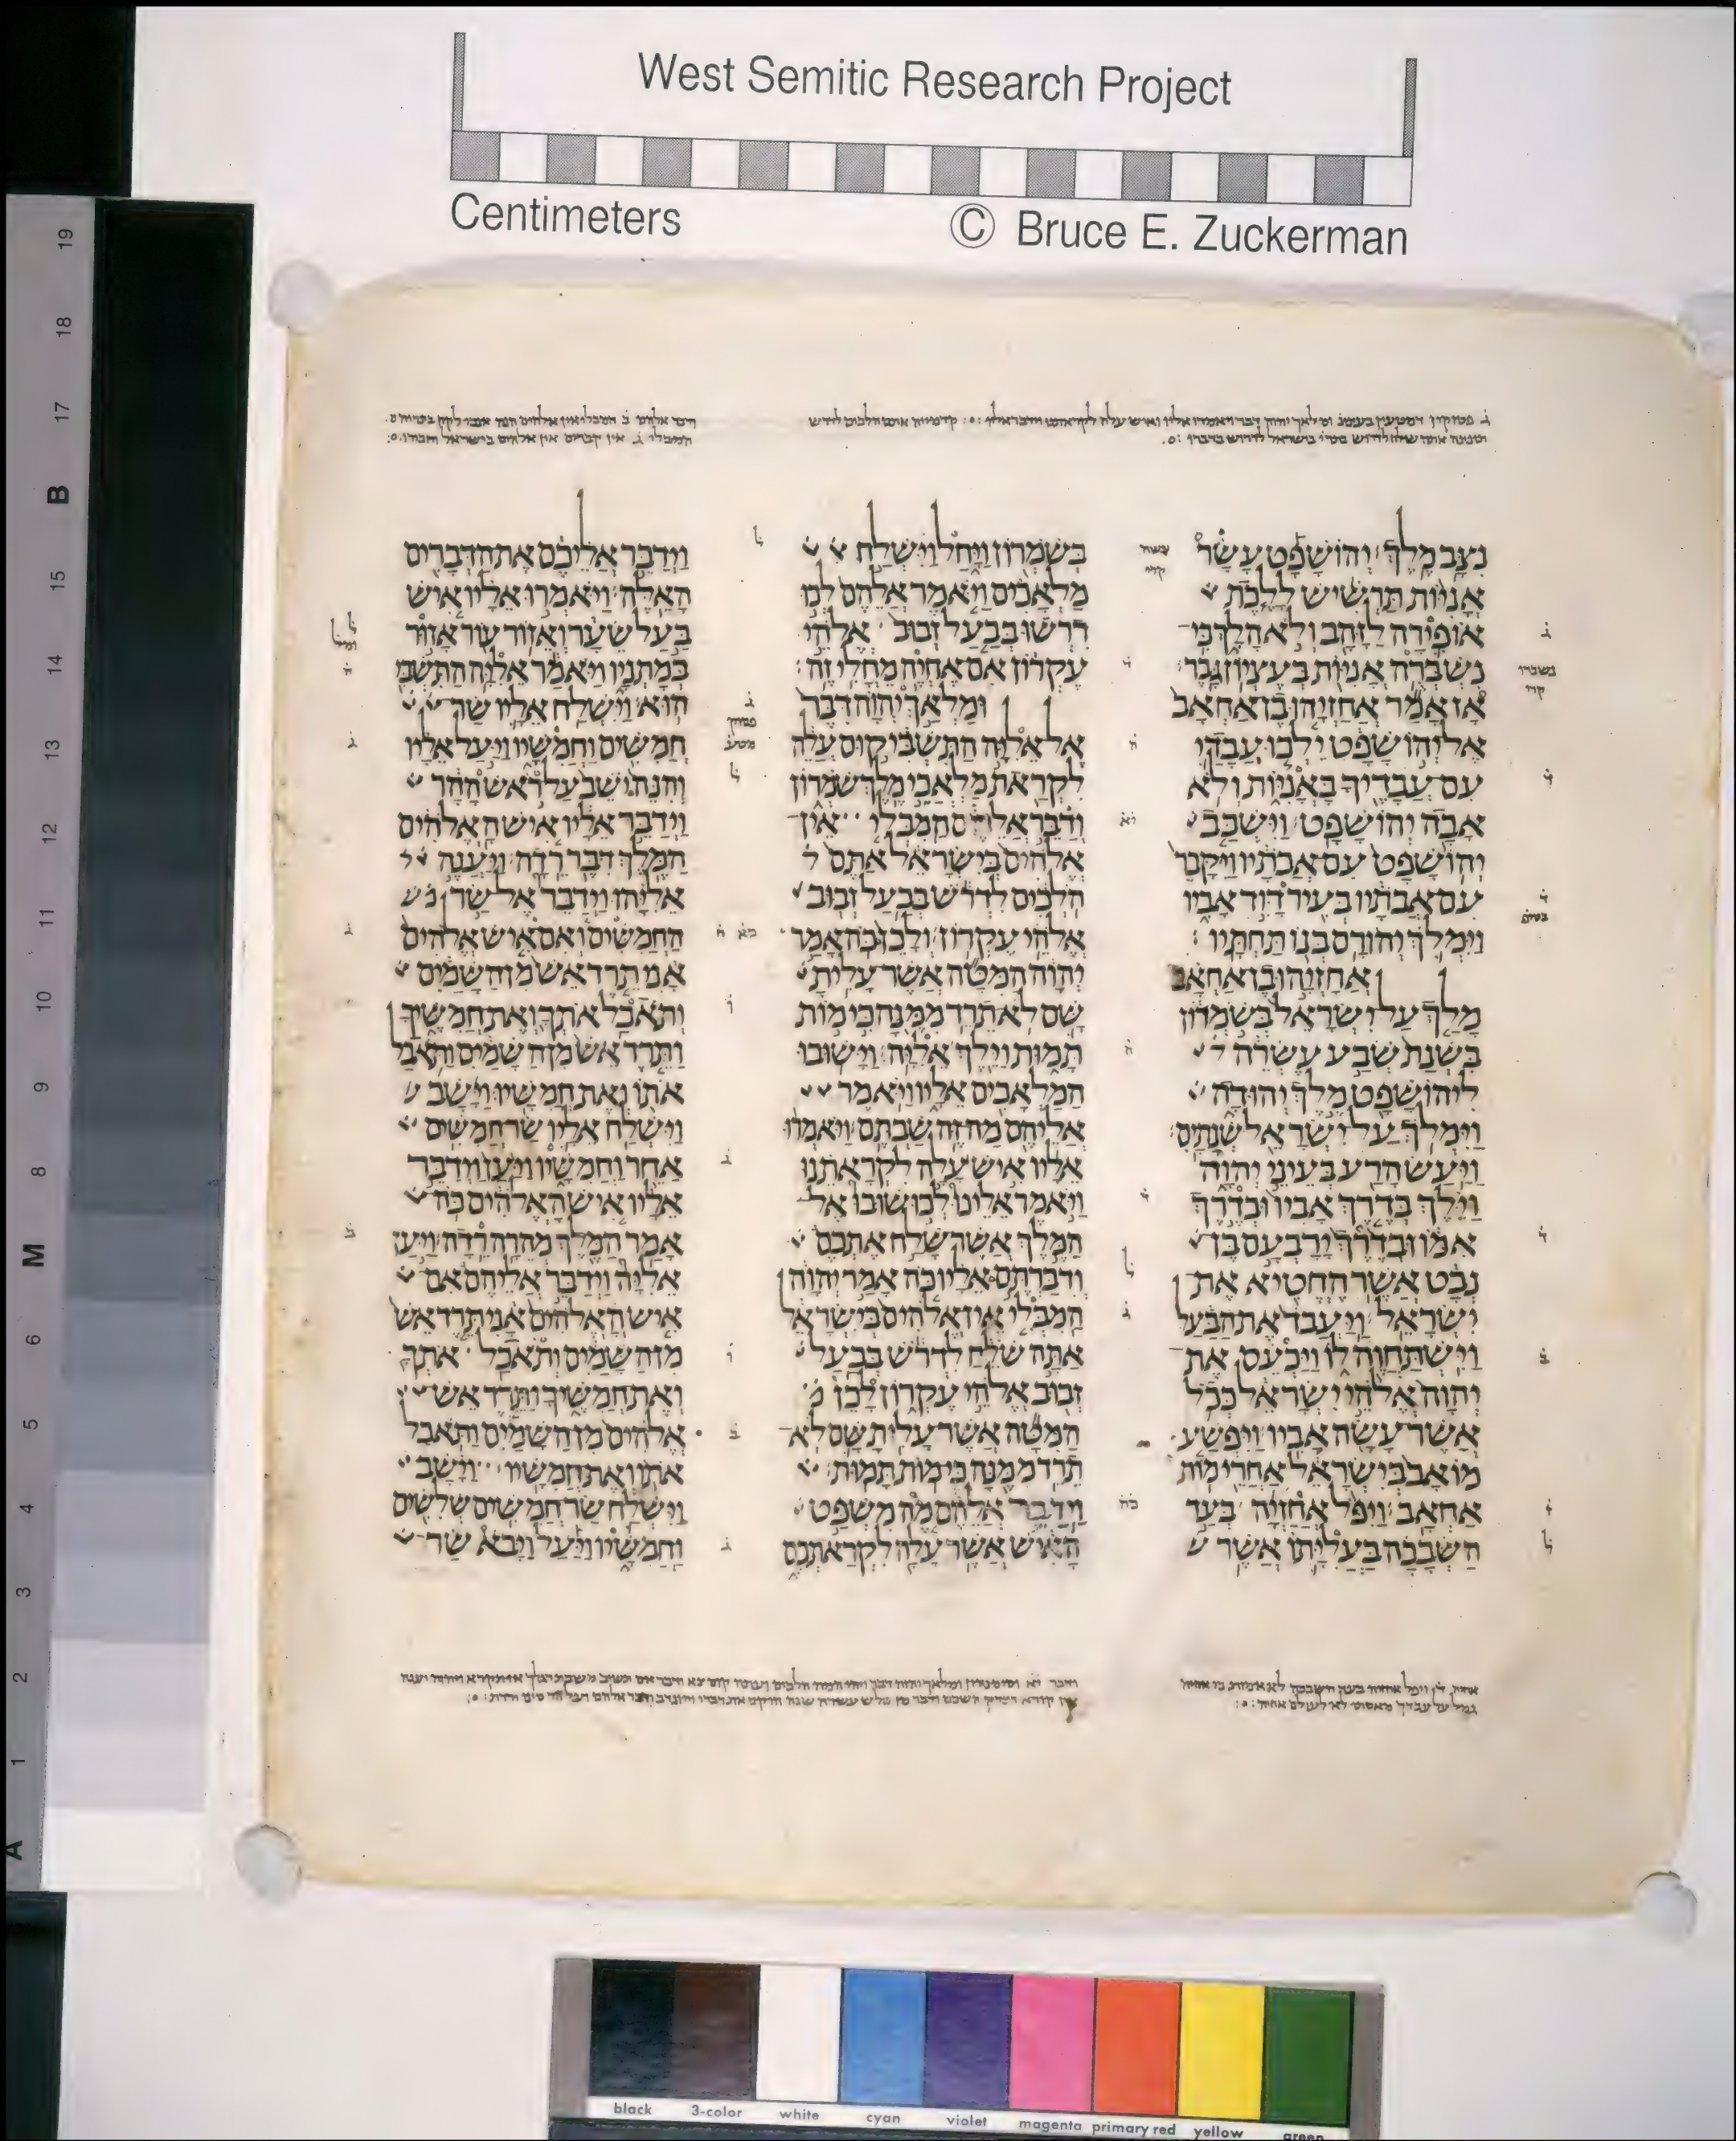 West Semitic Research Project
Centimeters
© Bruce E. Zuckerman
נצב מלך׃ יהושפט עשר
אניות תרשיש ללכת
אופירה לזהב ולא הלך כי
נשברה אניות בעציון גבר׃
אז אמר אחזיהו בן אחאב
אל יהושפט ילכו עבדי
עם עבדיך באניות ולא
אבה יהושפט׃ וישכב
יהושפט עם אבתיו ויקבר
עם אבתיו בעיר דוד אביו
וימלך יהורם בנו תחתיו׃
אחזיהו בן אחאב
מלך על ישראל בשמרון
בשנת שבע עשרה
ליהושפט מלך יהודה
וימלך על ישראל שנתים׃
ויעש הרע בעיני יהוה
וילך בדרך אביו ובדרך
אמו ובדרך ירבעם בן
נבט אשר החטיא את
ישראל׃ ויעבד את הבעל
וישתחוה לו ויכעס את
יהוה אלהי ישראל ככל
אשר עשה אביו׃ ויפשע
מואב בישראל אחרי מות
אחאב׃ ויפל אחזיה בעד
השבכה בעליתו אשר
בשמרון ויחל וישלח
מלאכים ויאמר אלהם לכו
דרשו בבעל זבוב אלהי
עקרון אם אחיה מחלי זה׃
ומלאך יהוה דבר
אל אליה התשבי קום עלה
לקראת מלאכי מלך שמרון
ודבר אלהם המבלי אין
אלהים בישראל אתם
הלכים לדרש בבעל זבוב
אלהי עקרון׃ ולכן כה אמר
יהוה המטה אשר עלית
שם לא תרד ממנה כי מות
תמות וילך אליה׃ וישובו
המלאכים אליו ויאמר
אליהם מה זה שבתם׃ ויאמרו
אליו איש עלה לקראתנו
ויאמר אלינו לכו שובו אל
המלך אשר שלח אתכם
ודברתם אליו כה אמר יהוה
המבלי אין אלהים בישראל
אתה שלח לדרש בבעל
זבוב אלהי עקרון לכן
המטה אשר עלית שם לא
תרד ממנה כי מות תמות׃
וידבר אלהם מה משפט
האיש אשר עלה לקראתכם
וידבר אליכם את הדברים
האלה׃ ויאמרו אליו איש
בעל שער ואזור עור אזור
במתניו ויאמר אליה התשבי
הוא׃ וישלח אליו שר
חמשים וחמשיו ויעל אליו
והנה ישב על ראש ההר
וידבר אליו איש האלהים
המלך דבר רדה׃ ויענה
אליהו וידבר אל שר
החמשים ואם איש אלהים
אני תרד אש מן השמים
ותאכל אתך ואת חמשיך
ותרד אש מן השמים ותאכל
אתו ואת חמשיו׃ וישב
וישלח אליו שר חמשים
אחר וחמשיו ויען וידבר
אליו איש האלהים כה
אמר המלך מהרה רדה׃ ויען
אליה וידבר אליהם אם
איש האלהים אני תרד אש
מן השמים ותאכל אתך
ואת חמשיך ותרד אש
אלהים מן השמים ותאכל
אתו ואת חמשיו׃ וישב
וישלח שר חמשים שלשים
וחמשיו ויעל ויבא שר
19
18
17
B
15
14
13
12
11
10
9
8
M
6
5
4
3
2
1
A
black 3-color white cyan violet magenta primary red yellow green